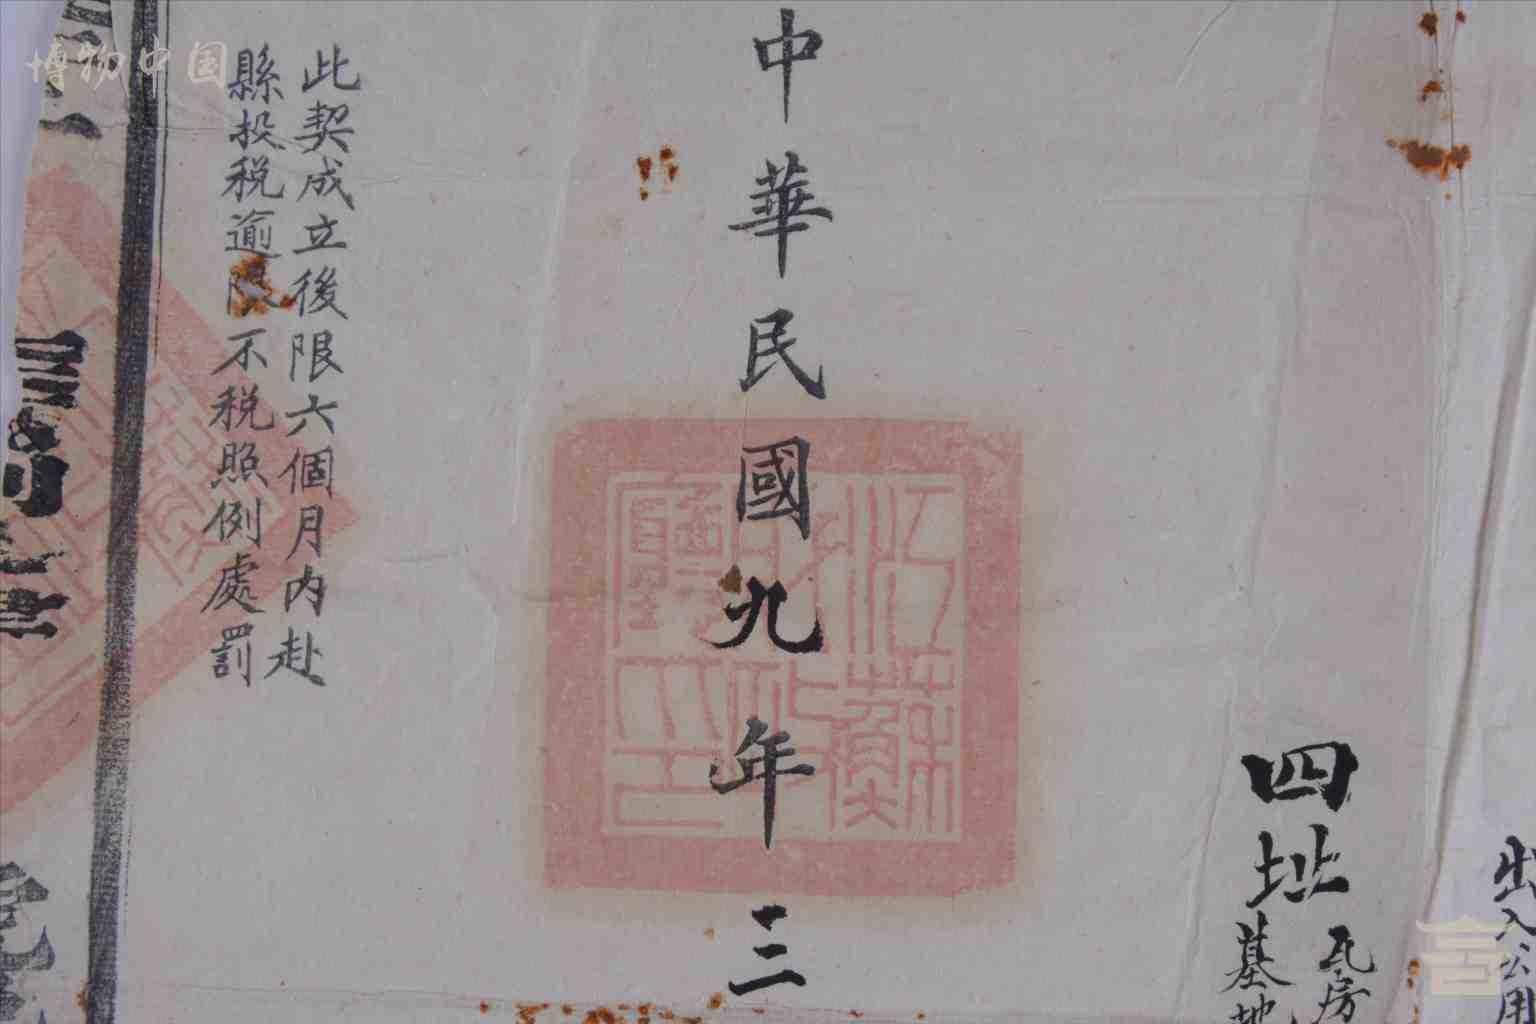 出入公用
四址
瓦房
墓地
中華民國九年三
江蘇
此契成立後限六個月內赴
縣投税逾限不税照例處罰
博物中国